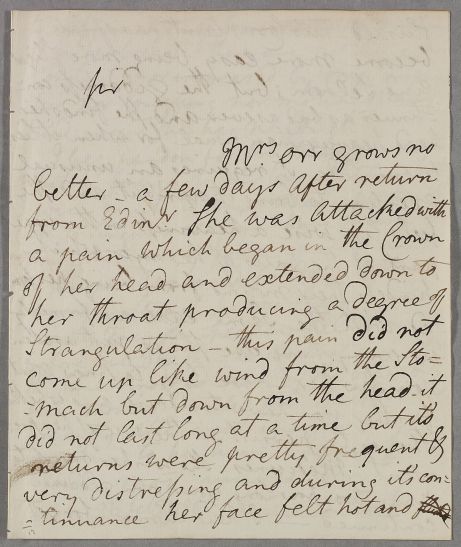 Sir
Mrs Orr grows no
better – a few days after return
from Edinr She was attacked with
a pain which began in the Crown
of her head and extended down to
her throat producing a degree of
Strangulation – this pain did not
come up like wind from the Sto=
=mach but down from the head – it
did not last long at a time but it's
returns were pretty frequent &
very distressing and during it's con=
=tinuance her face felt hot and